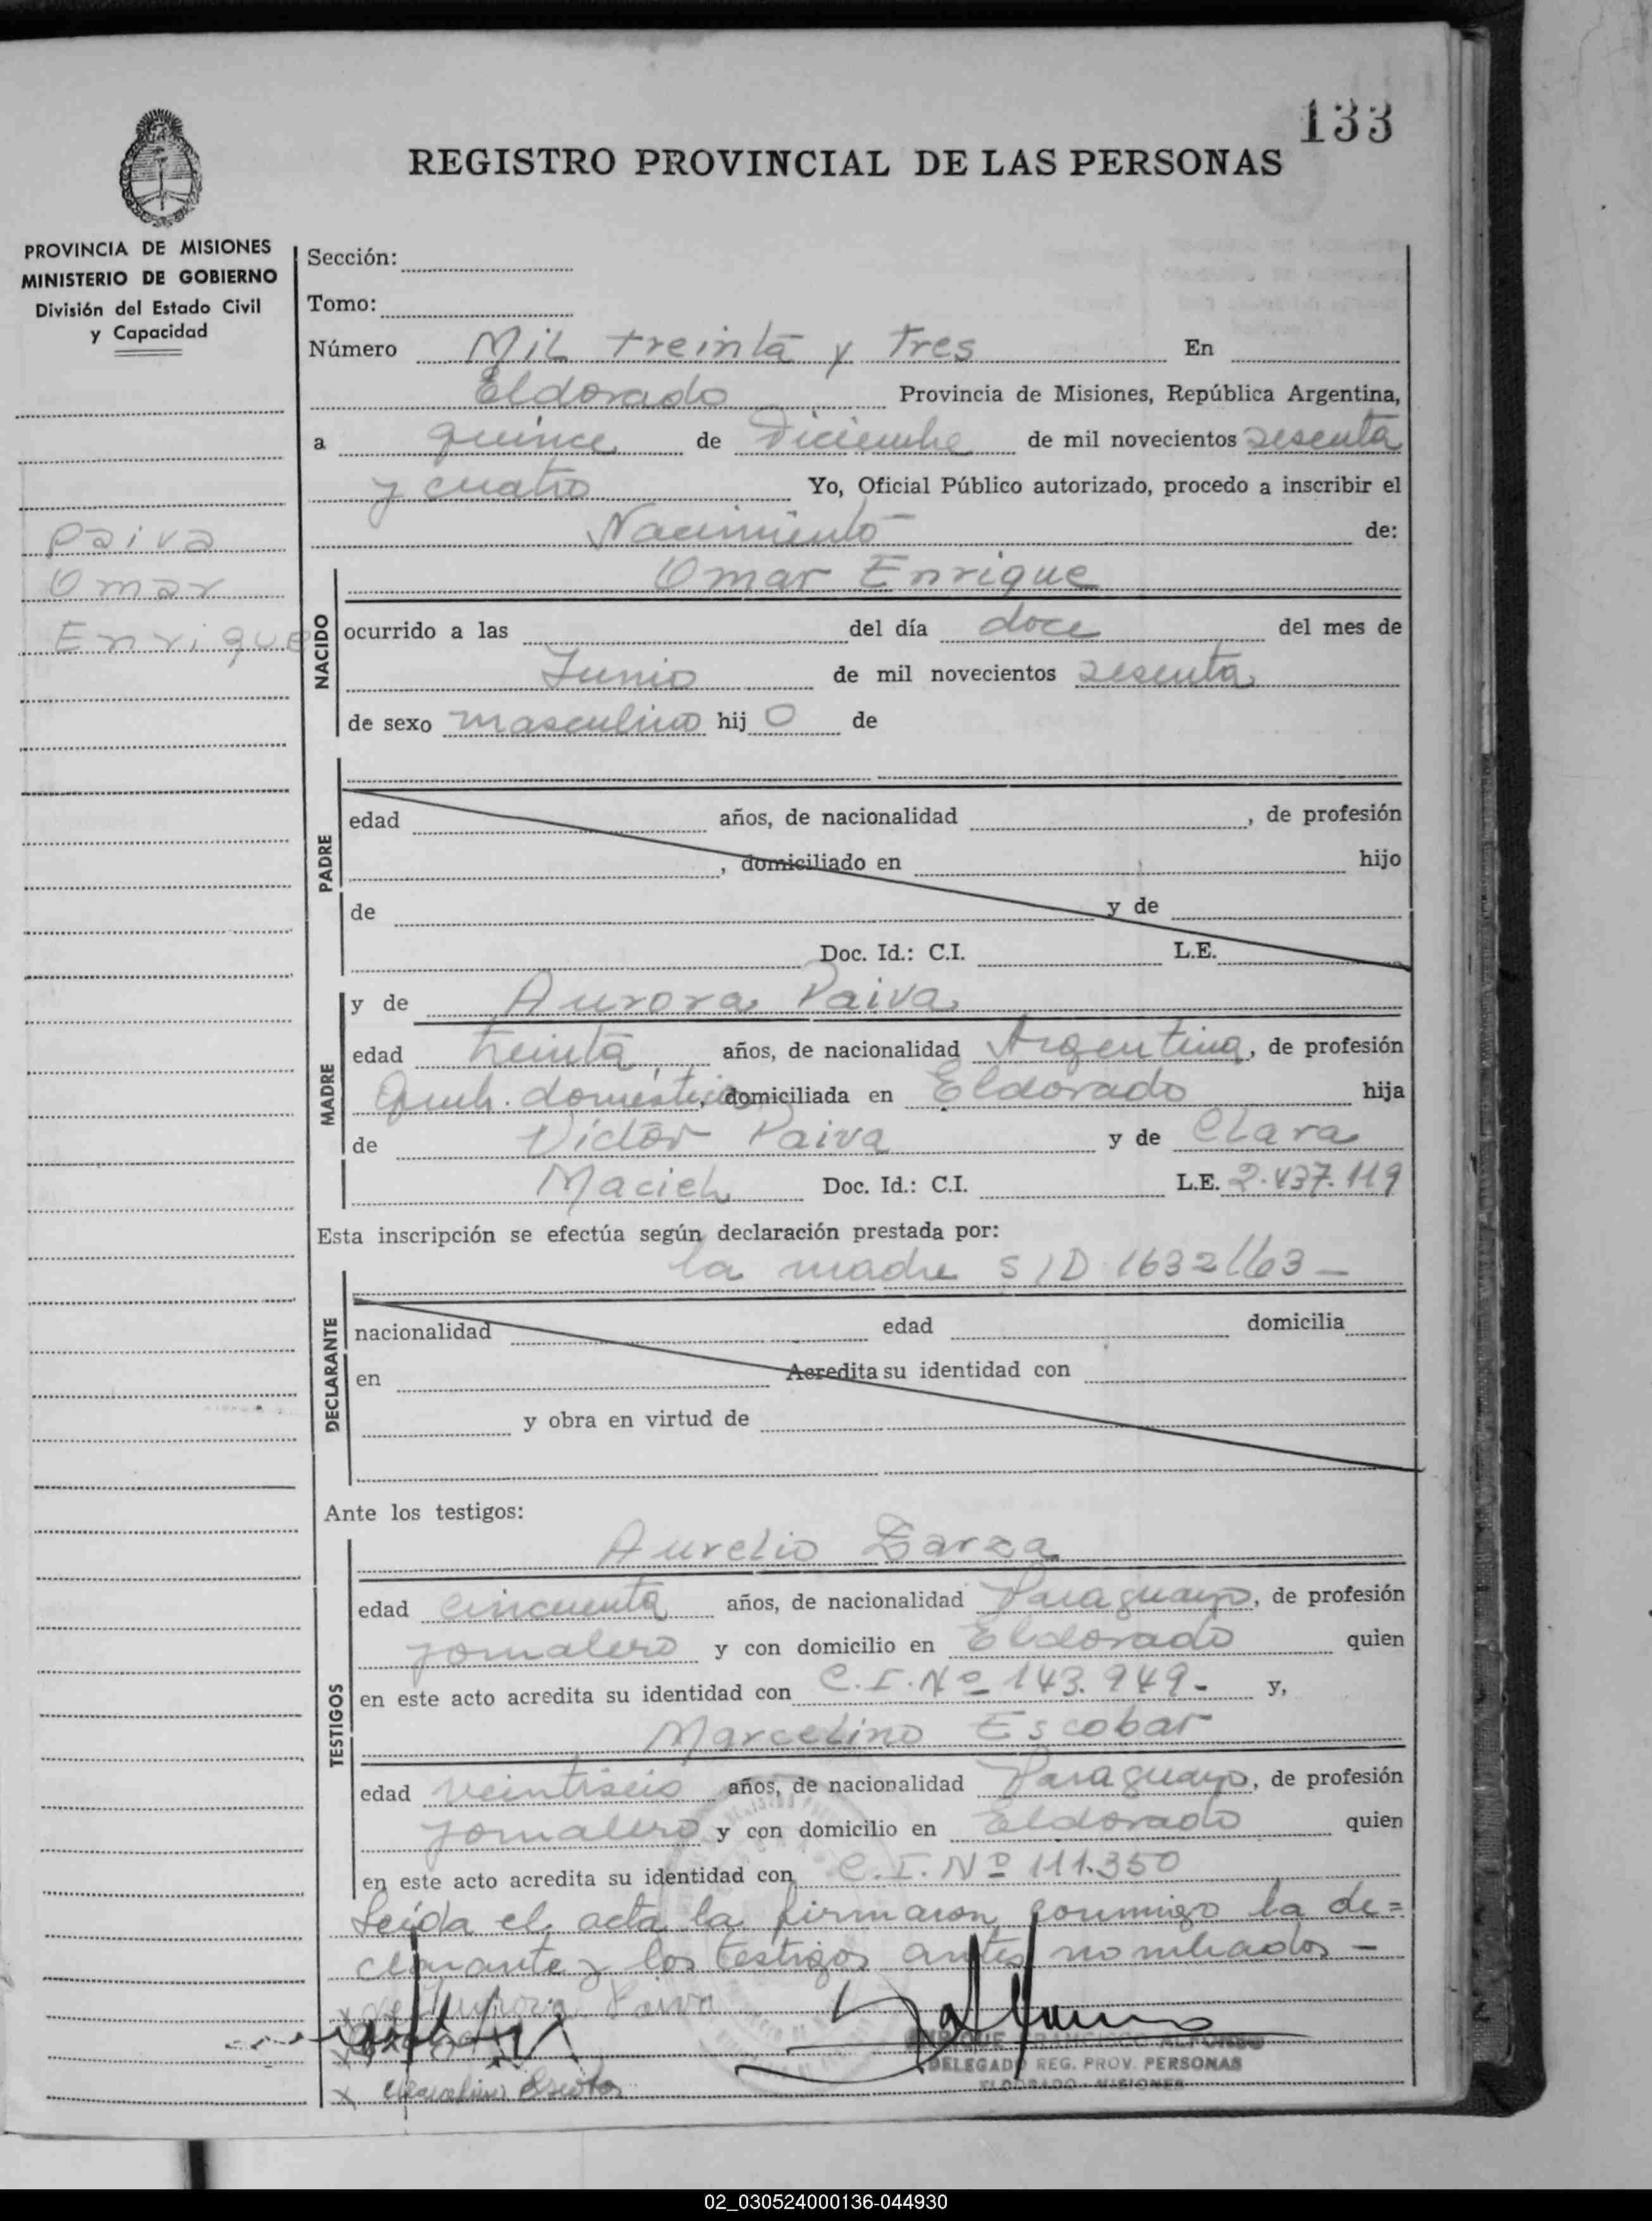 133
REGISTRO PROVINCIAL DE LAS PERSONAS
PROVINCIA DE MISIONES
MINISTERIO DE GOBIERNO
División del Estado Civil
y Capacidad
Paiva
Omar
Enrique
Sección:
Tomo:
Número Mil treinta y tres En
Eldorado Provincia de Misiones, República Argentina,
a quince de Diciembre de mil novecientos sesenta
y cuatro Yo, Oficial Público autorizado, procedo a inscribir el
Nacimiento de:
NACIDO
Omar Enrique
ocurrido a las del día doce del mes de
Junio de mil novecientos sesenta
de sexo masculino hij o de
PADRE
edad años, de nacionalidad , de profesión
, domiciliado en hijo
de y de
Doc. Id.: C.I. L.E.
MADRE
y de Aurora Paiva
edad treinta años, de nacionalidad Argentina, de profesión
domiciliada en Eldorado hija
de Victor Paiva y de Clara
Maciel Doc. Id.: C.I. L.E. 2.437.119
Esta inscripción se efectúa según declaración prestada por:
la madre S/D 1632/63 —
DECLARANTE
nacionalidad edad domicilia
en Acredita su identidad con
y obra en virtud de
Ante los testigos:
TESTIGOS
Aurelio Zarza
edad cincuenta años, de nacionalidad Paraguayo, de profesión
jornalero y con domicilio en Eldorado quien
en este acto acredita su identidad con C.I. Nº 143.949- y,
Marcelino Escobar
edad veintiseis años, de nacionalidad Paraguayo, de profesión
jornalero y con domicilio en Eldorado quien
en este acto acredita su identidad con C.I. Nº 111.350
Leída el acta la firmaron conmigo la de=
clarante y los testigos antes nombrados —
x Aurora Paiva
x
ENRIQUE FRANCISCO ALFONSO
DELEGADO REG. PROV. PERSONAS
ELDORADO - MISIONES
x
02_030524000136-044930